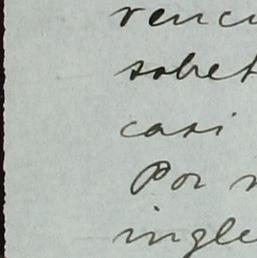 renci
sobet
casi
Por
ingle